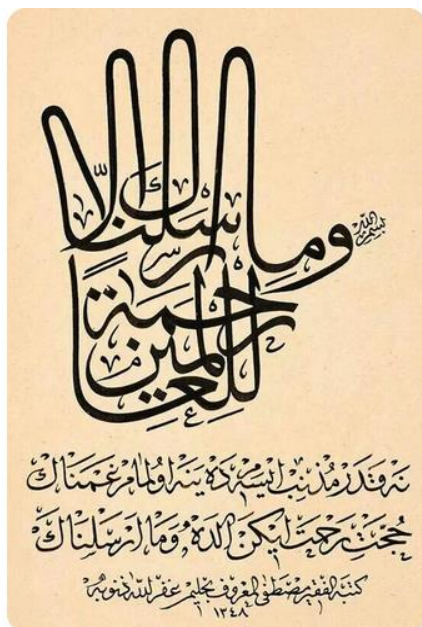 بسم الله
وما أرسلناك إلّا
رحمةً للعالمين
نه قدر مذنب ايسه م ده ينه اولمام غمناك
حجت رحمت ايكن الده وما ارسلناك
كتبه الفقير مصطفى المعروف بحليم غفر الله ذنوبه
١٣٤٨